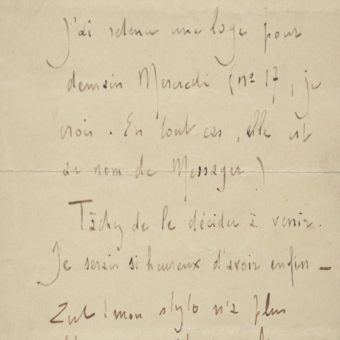 J'ai retenu une loge pour
demain Mercredi (nº 17, je
crois. En tout cas, elle est
au nom de Messager)
Tâchez de le décider à venir.
Je serais si heureux d'avoir enfin _
Zut ! mon stylo n'a plus